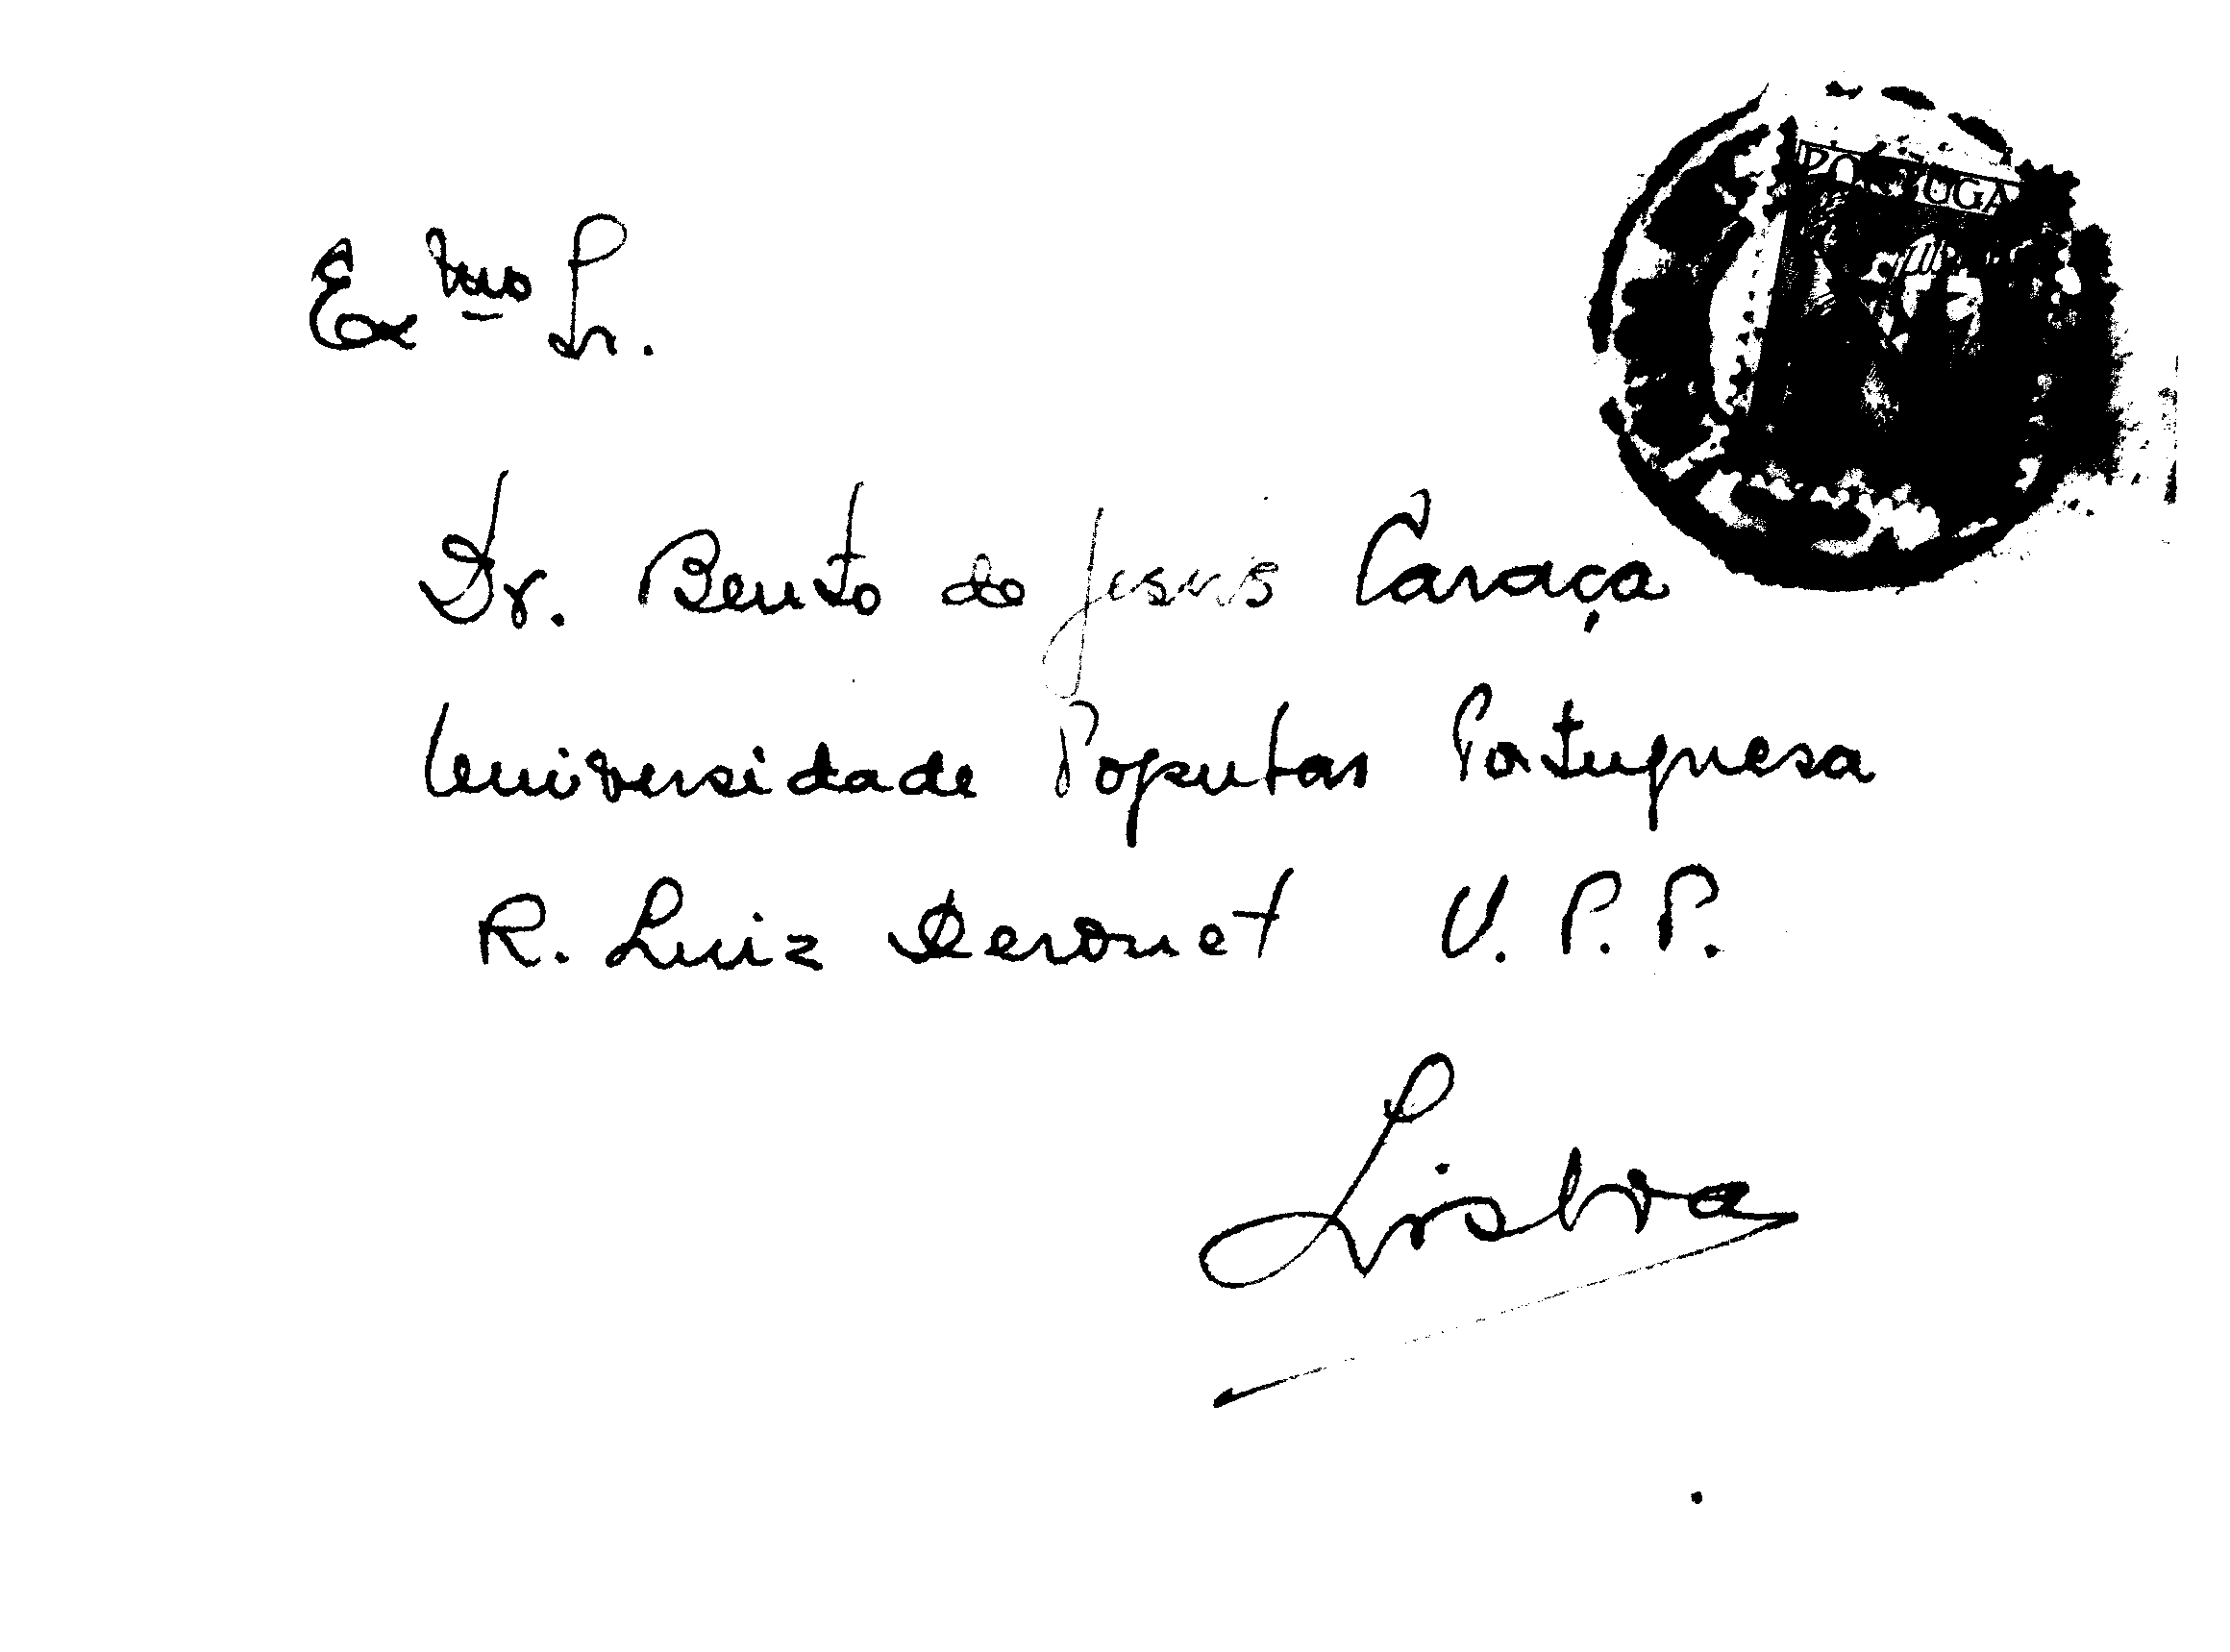 PORTUGAL
Exmo Sr.
Dr. Bento de Jesus Caraça
Universidade Popular Portuguesa
R. Luiz Derouet U. P. P.
Lisboa